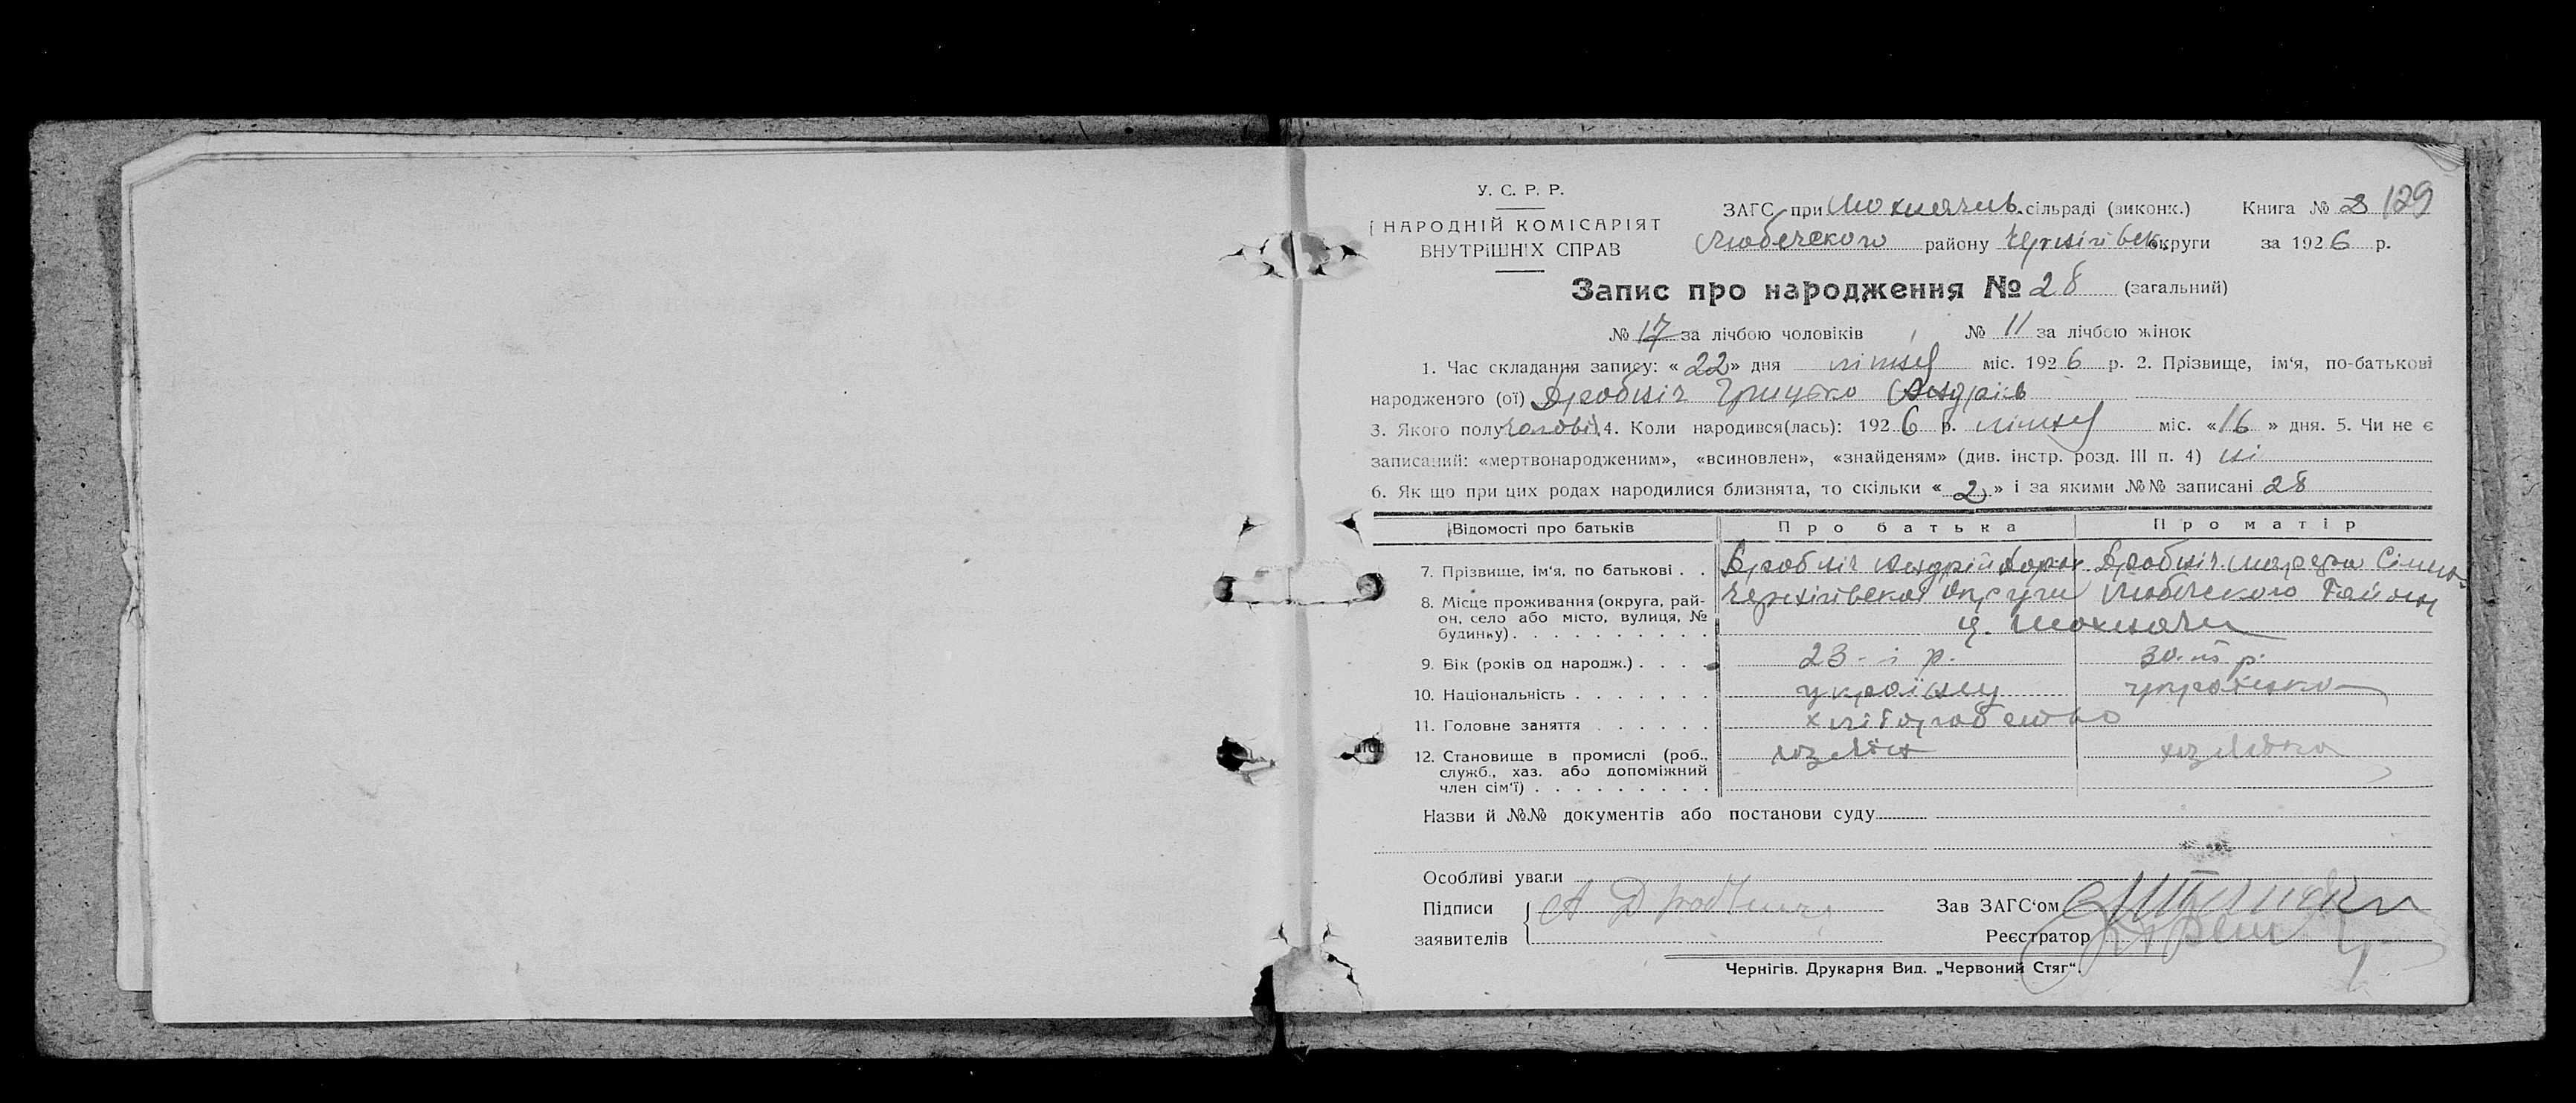 У. С. Р. Р.
НАРОДНІЙ КОМІСАРІЯТ
ВНУТРІШНІХ СПРАВ
ЗАГС при Мохначів. сільраді (виконк.) Книга № 2 129
Любечського району Чернігівськ. округи за 1926 р.
Запис про народження № 28 (загальний)
№ 17 за лічбою чоловіків № 11 за лічбою жінок
1. Час складання запису: «22» дня липня міс. 1926 р. 2. Прізвище, ім‘я, по-батькові
народженого (ої) Дробніч Грицько Андрів
3. Якого полу чоловіч. 4. Коли народився(лась): 1926 р. липня міс. «16» дня. 5. Чи не є
записаний: «мертвонародженим», «всиновлен», «знайденям» (див. інстр. розд. III п. 4) ні
6. Як що при цих родах народилися близнята, то скільки «2» і за якими №№ записані 28
Відомості про батьків Про батька Про матір
7. Прізвище, ім‘я, по батькові . . Дробніч Андрій Дробніч Марфа
8. Місце проживання (округа, рай- Чернігівської Округи Любечського Району
он, село або місто, вулиця, №
будинку) . . . . . . . . . . Мохначи
9. Вік (років од народж.) . . . . 23-і р. 30-ть р.
10. Національність . . . . . . . українец українка
11. Головне заняття . . . . . . хліборобство
12. Становище в промислі (роб., хазяїн хазяйка
служб., хаз. або допоміжний
член сім‘ї) . . . . . . . . .
Назви й №№ документів або постанови суду
Особливі уваги
Підписи А Дробнич Зав ЗАГС‘ом
заявителів Реєстратор
Чернігів. Друкарня Вид. „Червоний Стяг“.